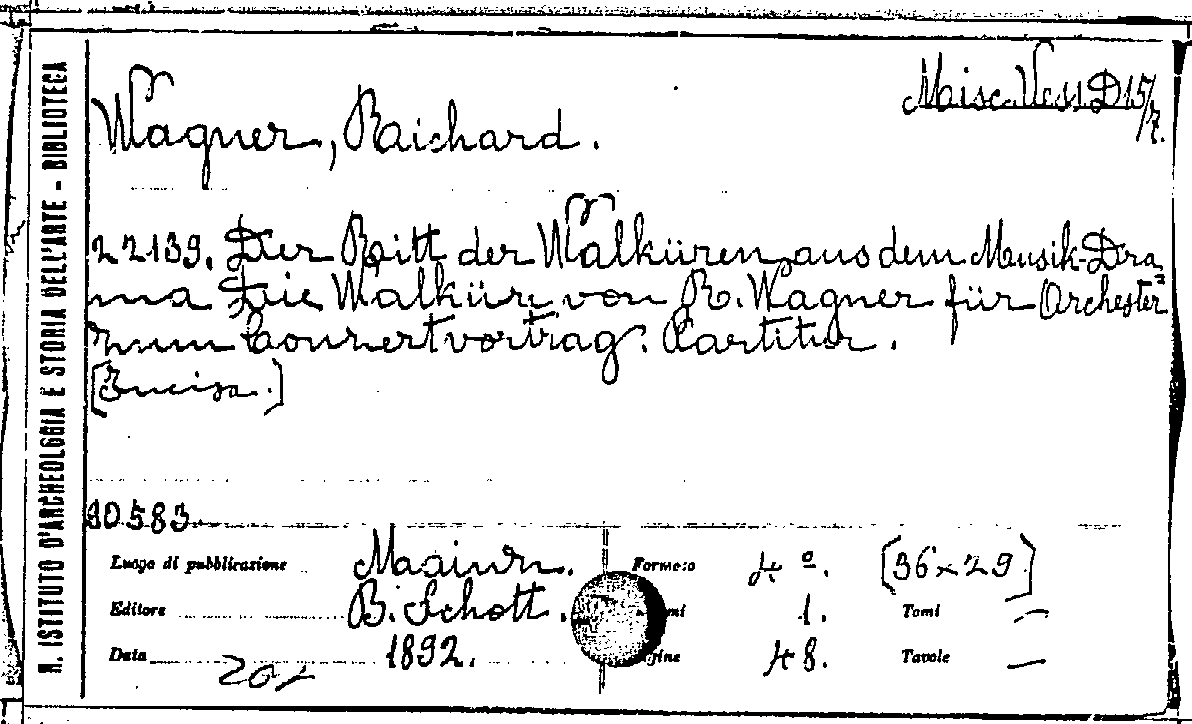 R. ISTITUTO D'ARCHEOLOGIA E STORIA DELL'ARTE - BIBLIOTECA
Misc. Vess D 15/7.
Wagner, Raichard.
22139. Der Ritt der Walküren, aus dem Musik-Dra
ma "Die Walküre" von R. Wagner für Orchester
zum Conzertvortrag. Partitur.
[Incisa.]
80583
Luogo di pubblicazione Mainz. Formato 4º. [36×29]
Editore B. Schott. 1. Tomi —
Data 1892. 48. Tavole —